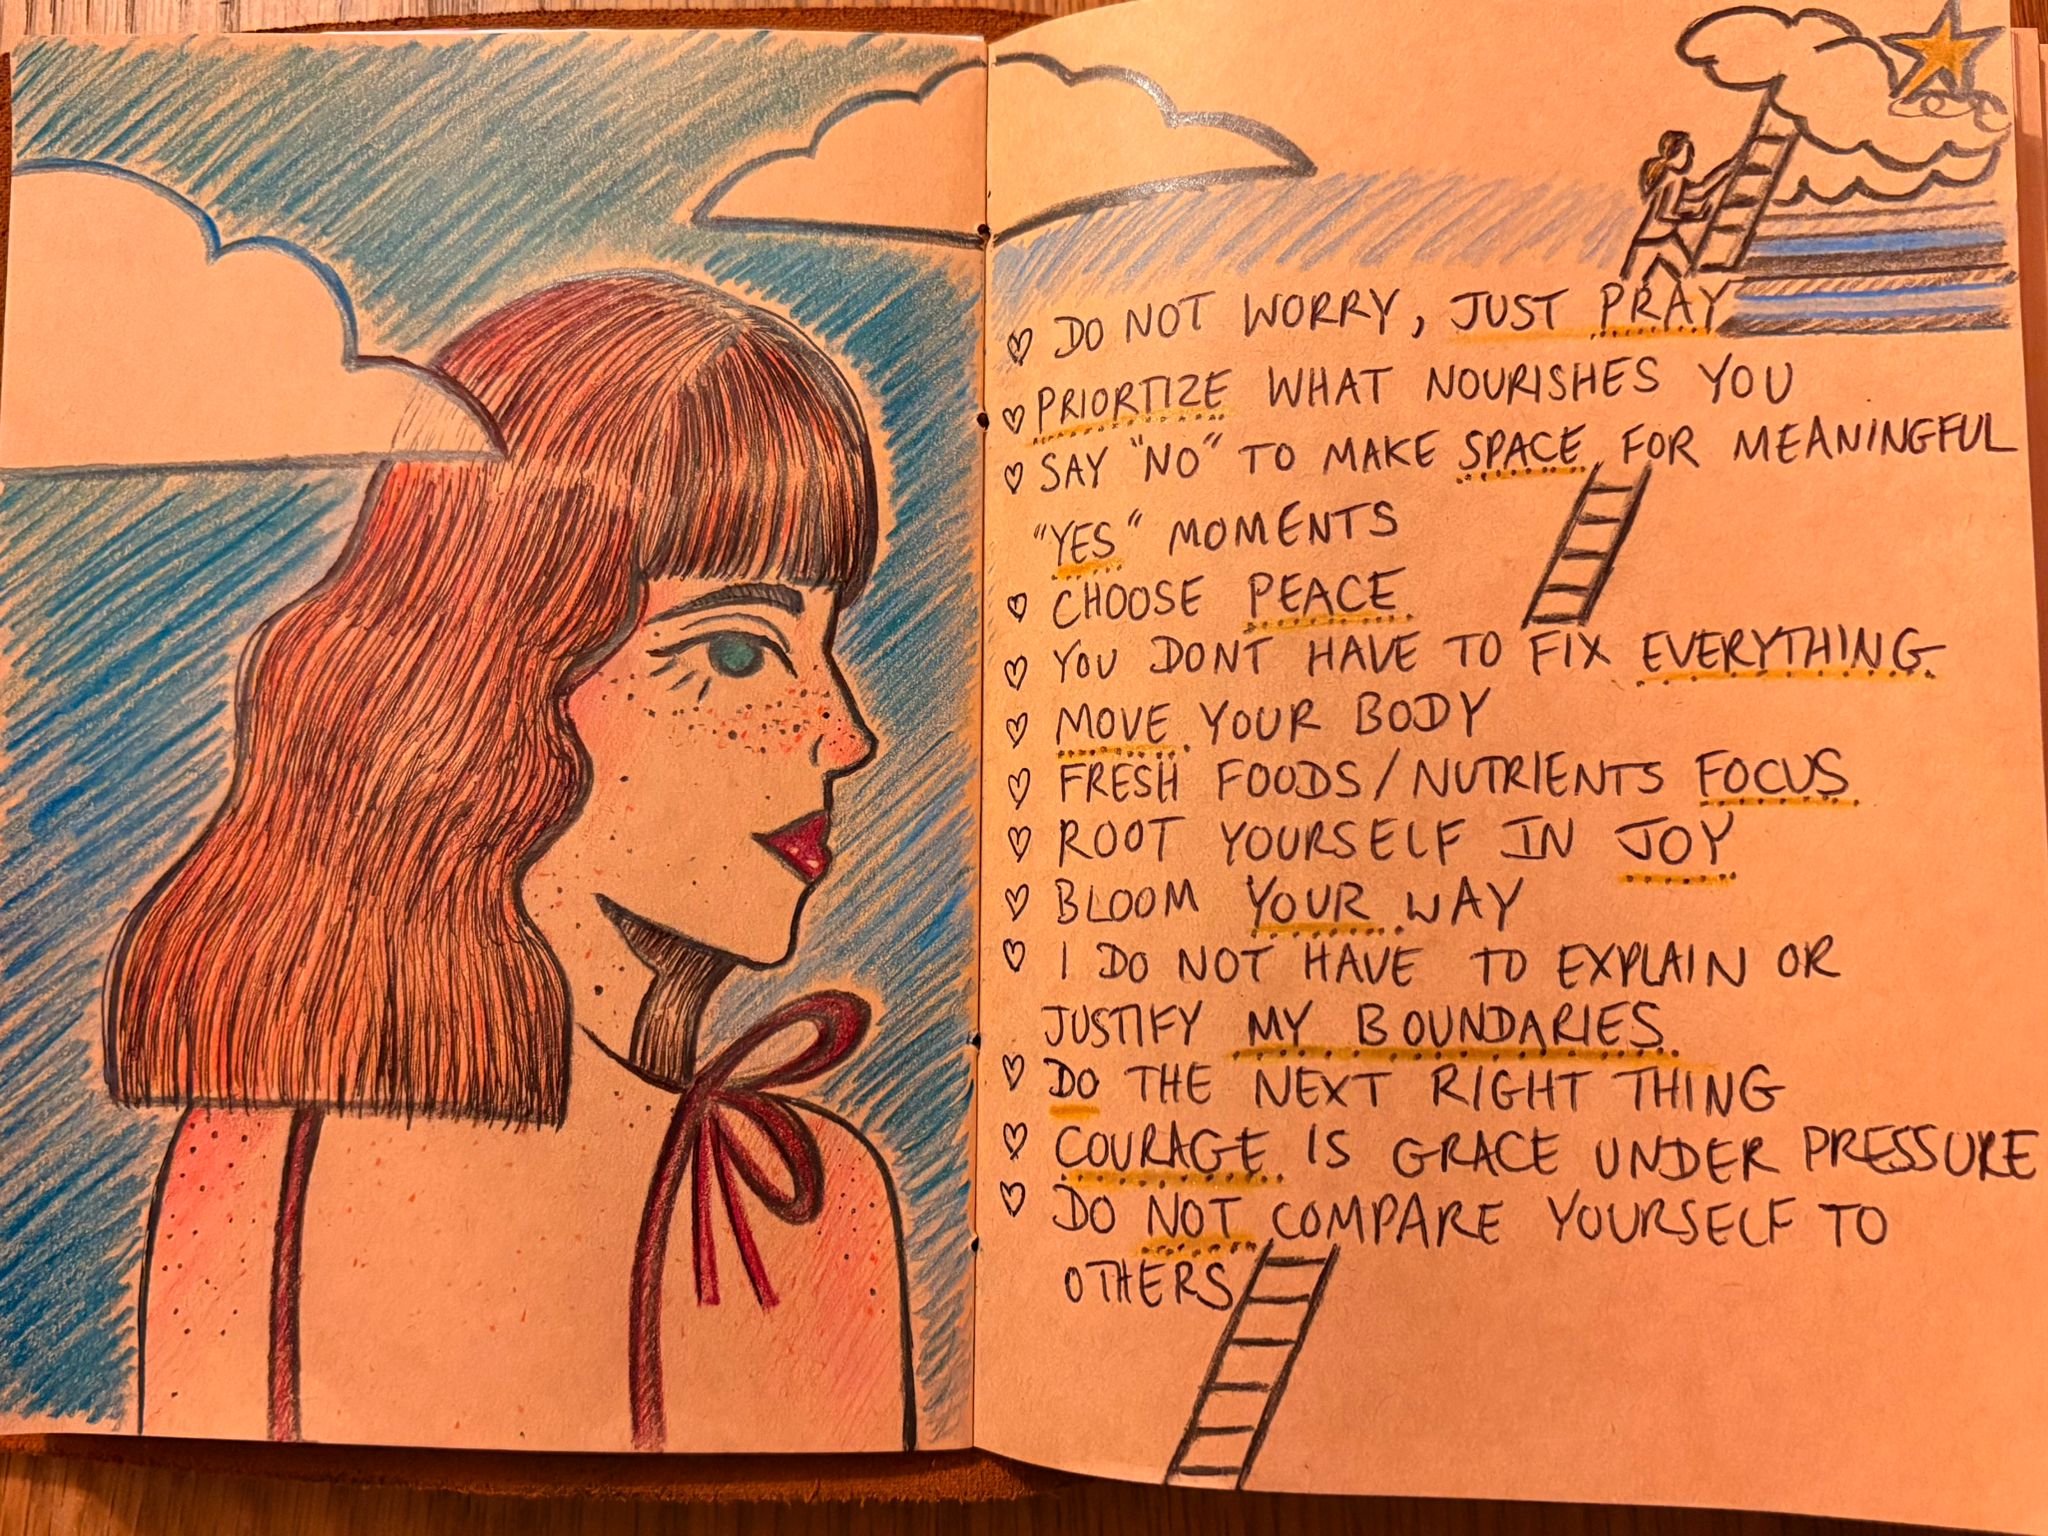 ♡ DO NOT WORRY, JUST PRAY
♡ PRIORTIZE WHAT NOURISHES YOU
♡ SAY "NO" TO MAKE SPACE FOR MEANINGFUL
"YES" MOMENTS
♡ CHOOSE PEACE
♡ YOU DONT HAVE TO FIX EVERYTHING
♡ MOVE YOUR BODY
♡ FRESH FOODS/NUTRIENTS FOCUS
♡ ROOT YOURSELF IN JOY
♡ BLOOM YOUR WAY
♡ I DO NOT HAVE TO EXPLAIN OR
JUSTIFY MY BOUNDARIES
♡ DO THE NEXT RIGHT THING
♡ COURAGE IS GRACE UNDER PRESSURE
♡ DO NOT COMPARE YOURSELF TO
OTHERS